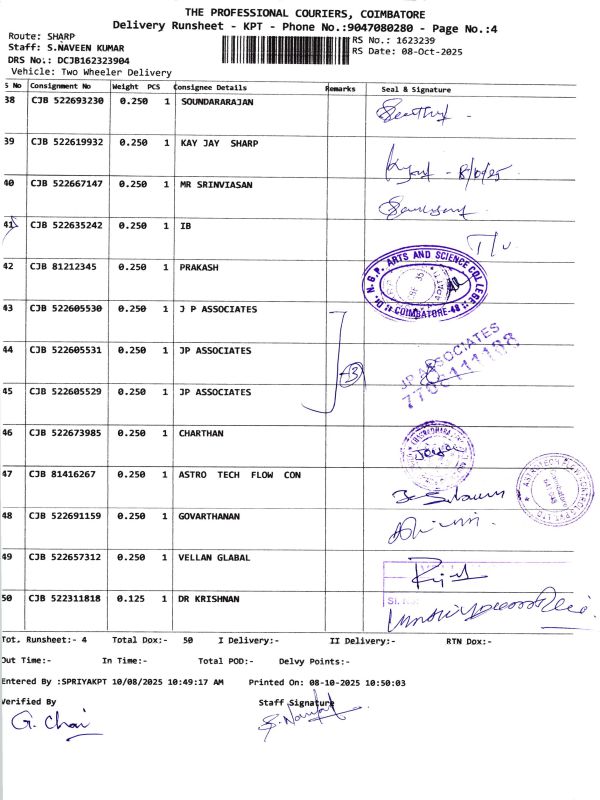 THE PROFESSIONAL COURIERS, COIMBATORE
Delivery Runsheet - KPT - Phone No.:9047080280 - Page No.:4
Route: SHARP
RS No.: 1623239
Staff: S.NAVEEN KUMAR
RS Date: 08-Oct-2025
DRS No.: DCJB162323904
Vehicle: Two Wheeler Delivery
S No Consignment No Weight PCS Consignee Details Remarks Seal & Signature
38 CJB 522693230 0.250 1 SOUNDARARAJAN
39 CJB 522619932 0.250 1 KAY JAY SHARP
- 8/10/25
40 CJB 522667147 0.250 1 MR SRINVIASAN
41 CJB 522635242 0.250 1 IB
42 CJB 81212345 0.250 1 PRAKASH
Dr. N.G.P. ARTS AND SCIENCE COLLEGE
COIMBATORE-48
43 CJB 522605530 0.250 1 J P ASSOCIATES
44 CJB 522605531 0.250 1 JP ASSOCIATES
3
JP ASSOCIATES
45 CJB 522605529 0.250 1 JP ASSOCIATES
46 CJB 522673985 0.250 1 CHARTHAN
47 CJB 81416267 0.250 1 ASTRO TECH FLOW CON
48 CJB 522691159 0.250 1 GOVARTHANAN
49 CJB 522657312 0.250 1 VELLAN GLABAL
50 CJB 522311818 0.125 1 DR KRISHNAN
Tot. Runsheet:- 4 Total Dox:- 50 I Delivery:- II Delivery:- RTN Dox:-
Out Time:- In Time:- Total POD:- Delvy Points:-
Entered By :SPRIYAKPT 10/08/2025 10:49:17 AM Printed On: 08-10-2025 10:50:03
Verified By Staff Signature
G. Chai